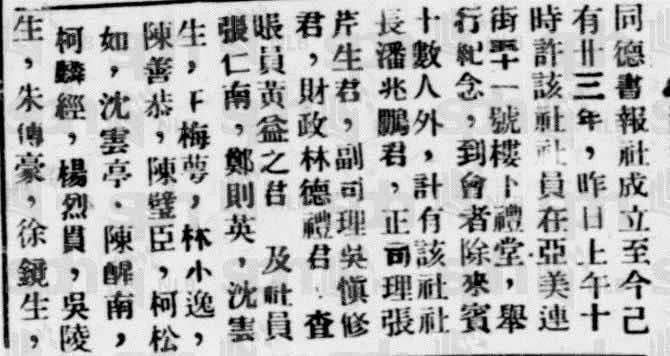 同德書報社成立至今己
有卅三年，昨日上午十
時許該社社員在亞美連
街五十一號樓卜禮堂，舉
行紀念，到會者除來賓
十數人外，計有該社社
長潘兆鵬君，正司理張
芹生君，副司理吳慎修
君，財政林德禮君．查
賬員黃益之君　及社員
張仁南，鄭則英，沈雲
生，丁梅夢，林小逸，
陳善恭，陳璧臣，柯松
如，沈雲亭．陳醉南，
柯麟經，楊烈員，吳陵
生，朱傳豪，徐鏡生，